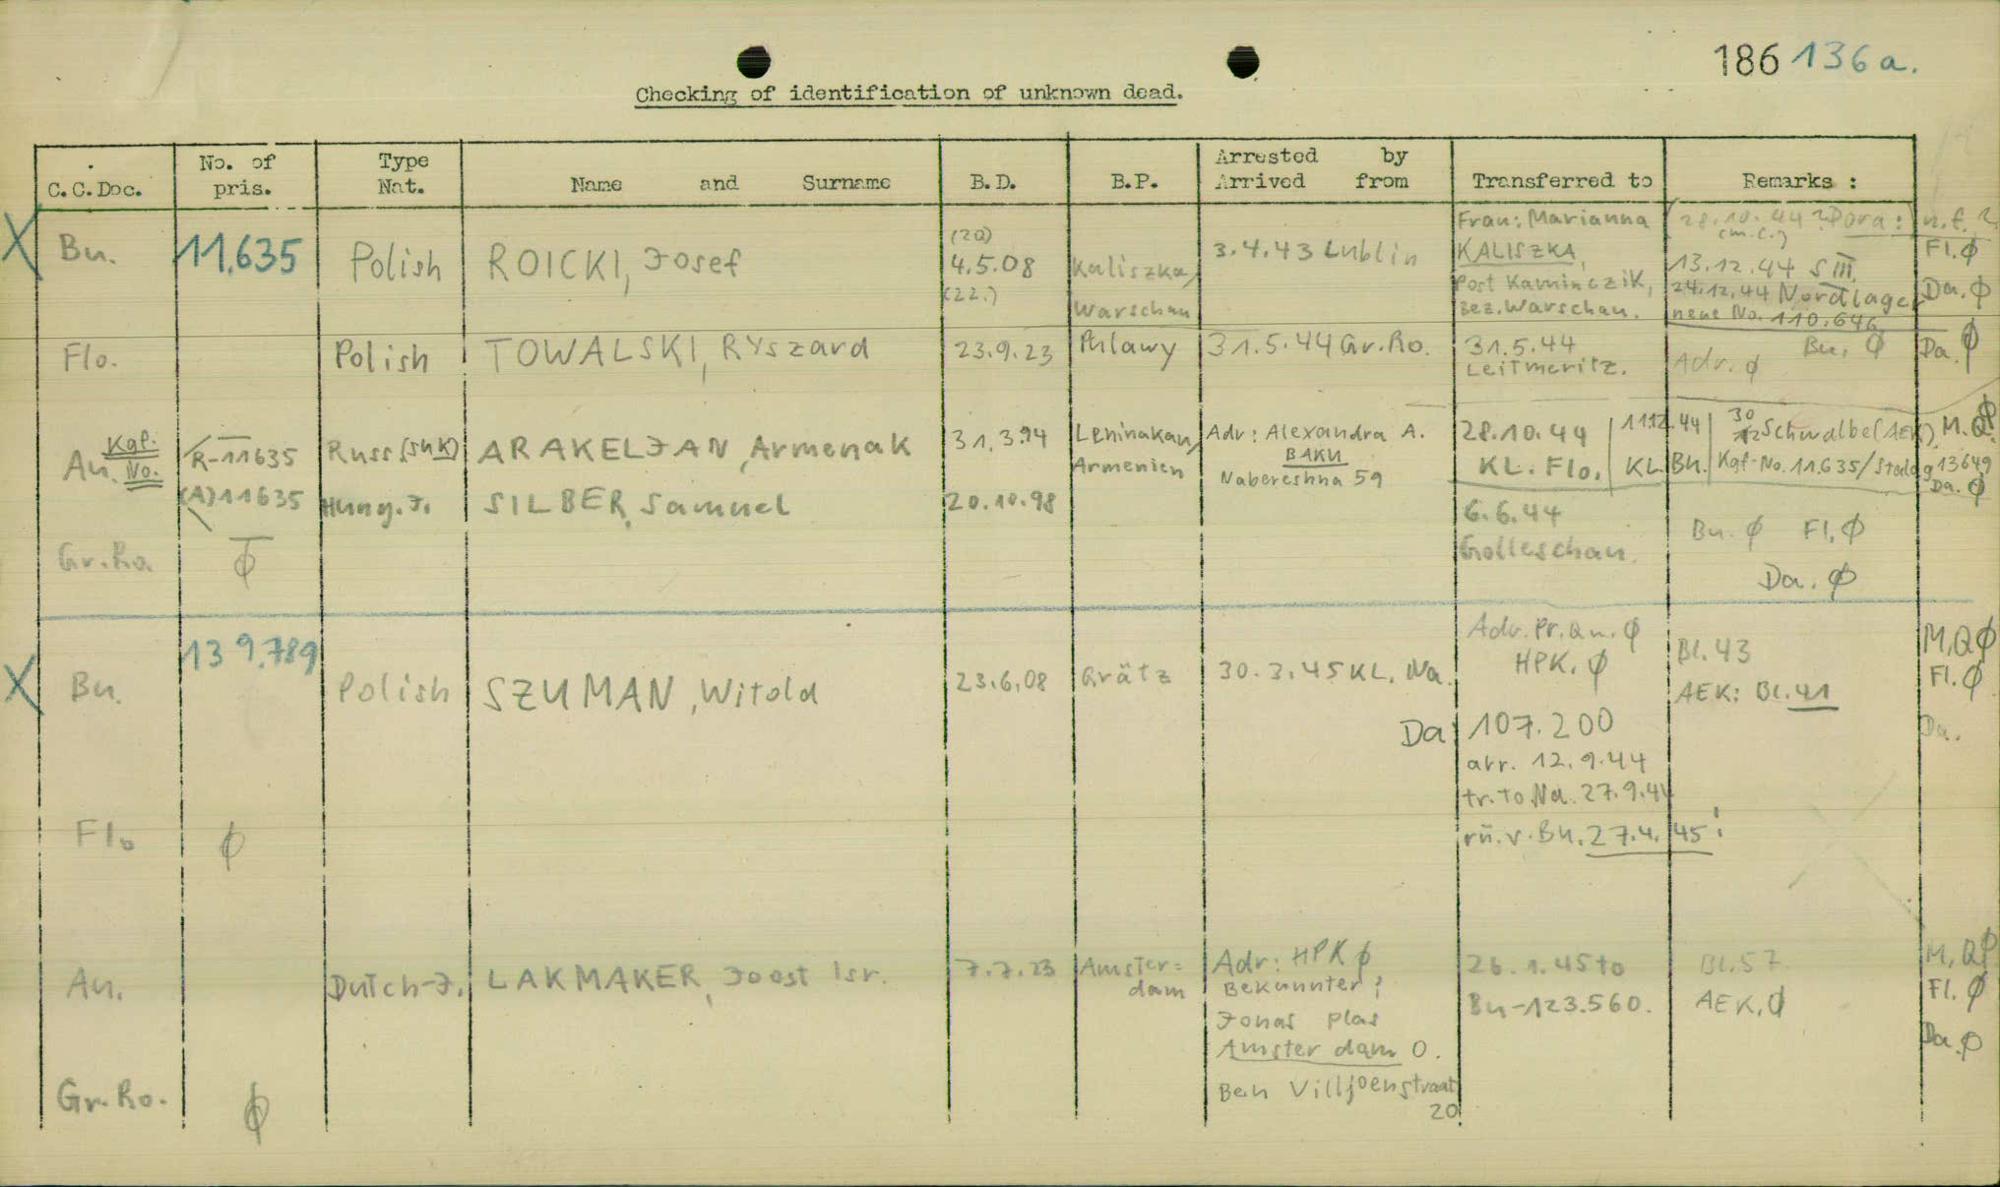 186 136a.
Checking of identification of unknown dead.
C.C.Doc. No. of pris. Type Nat. Name and Surname B.D. B.P. Arrested by Arrived from Transferred to Remarks :
X Bu. 11.635 Polish ROICKI, Josef (20) 4.5.08 (22.) Kaliszka, Warschau 3.4.43 Lublin
Frau: Marianna
KALISZKA,
Post Kaminczik,
Bez. Warschau.
(28.10.44 ? Dora:) n.f.?
(m.c.)
13.12.44 S III
24.12.44 Nordlager
neue No. 110.646
Fl. ø
Da. ø
Flo. Polish TOWALSKI, Ryszard 23.9.23 Pulawy 31.5.44 Gr.Ro. 31.5.44 Leitmeritz. Adr. ø Bu. ø Da. ø
Au. Kgf. No. R-11635 Russ (SUK) ARAKELJAN, Armenak 31.3.14 Leninakan, Armenien
Adr: Alexandra A.
BAKU
Nabereshna 59
28.10.44 KL. Flo. 11.12.44 KL Bu.
30 12 Schwalbe (AEK). M.Q ø
Kgf-No. 11.635/Stalag 13649
Da. ø
(A) 11635 Hung.J. SILBER, Samuel 20.10.98
6.6.44
Golleschau.
Bu. ø Fl. ø
Da. ø
Gr.Ro ø
X Bu. 139.789 Polish SZUMAN, Witold 23.6.08 Grätz 30.3.45 KL. Na.
Adr. Pr. Qu. ø
HPK. ø
Bl. 43
AEK: Bl. 41
M.Q ø
Fl. ø
Da.
Da 107.200
arr. 12.9.44
tr. to Na. 27.9.44
rü. v. Bu. 27.4.45!
Flo ø
Au. Dutch-J. LAKMAKER, Joost Isr. 7.7.23 Amster=dam
Adr: HPK ø
Bekannter:
Jonas Plas
Amsterdam O.
Ben Villjoenstraat
20.
26.1.45 to
Bu-123.560.
Bl. 57
AEK, ø
M, Q ø
Fl. ø
Da. ø
Gr.Ro. ø